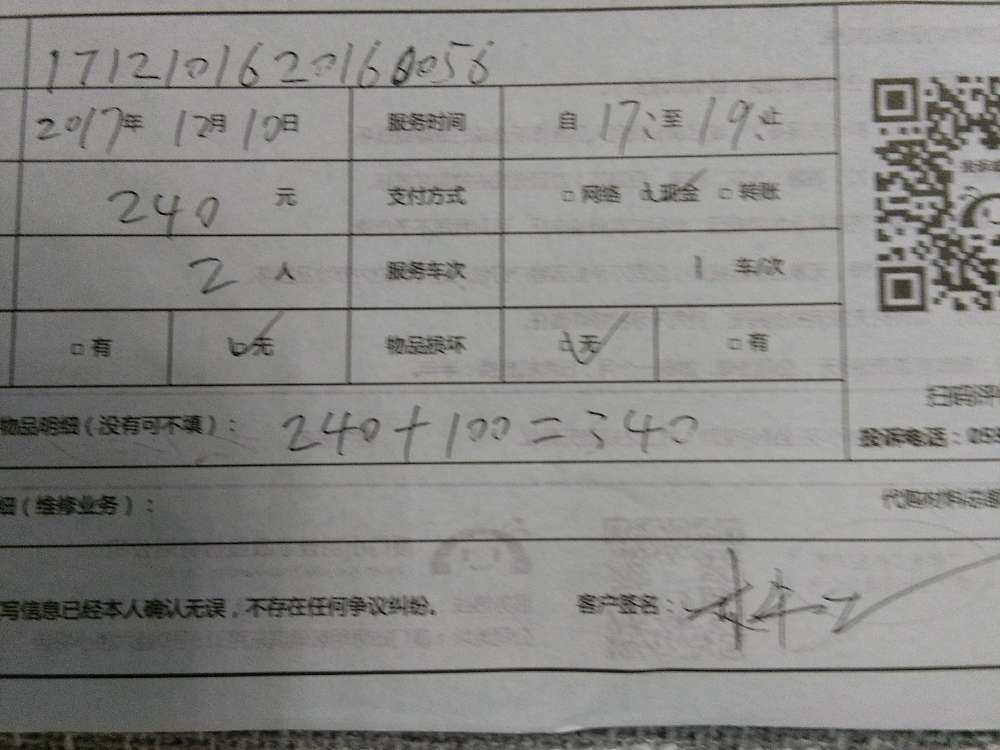 1712101620160056
2017年 12月 10日 服务时间 自 17: 至 19: 止
240 元 支付方式 □ 网络 □ 现金 □ 转账
2 人 服务车次 1 车/次
□ 有 □ 无 物品损坏 □ 无 □ 有
扫码评
物品明细（没有可不填）： 240+100=340
投诉电话：05
细（维修业务）： 代购材料总
写信息已经本人确认无误，不存在任何争议纠纷。 客户签名：